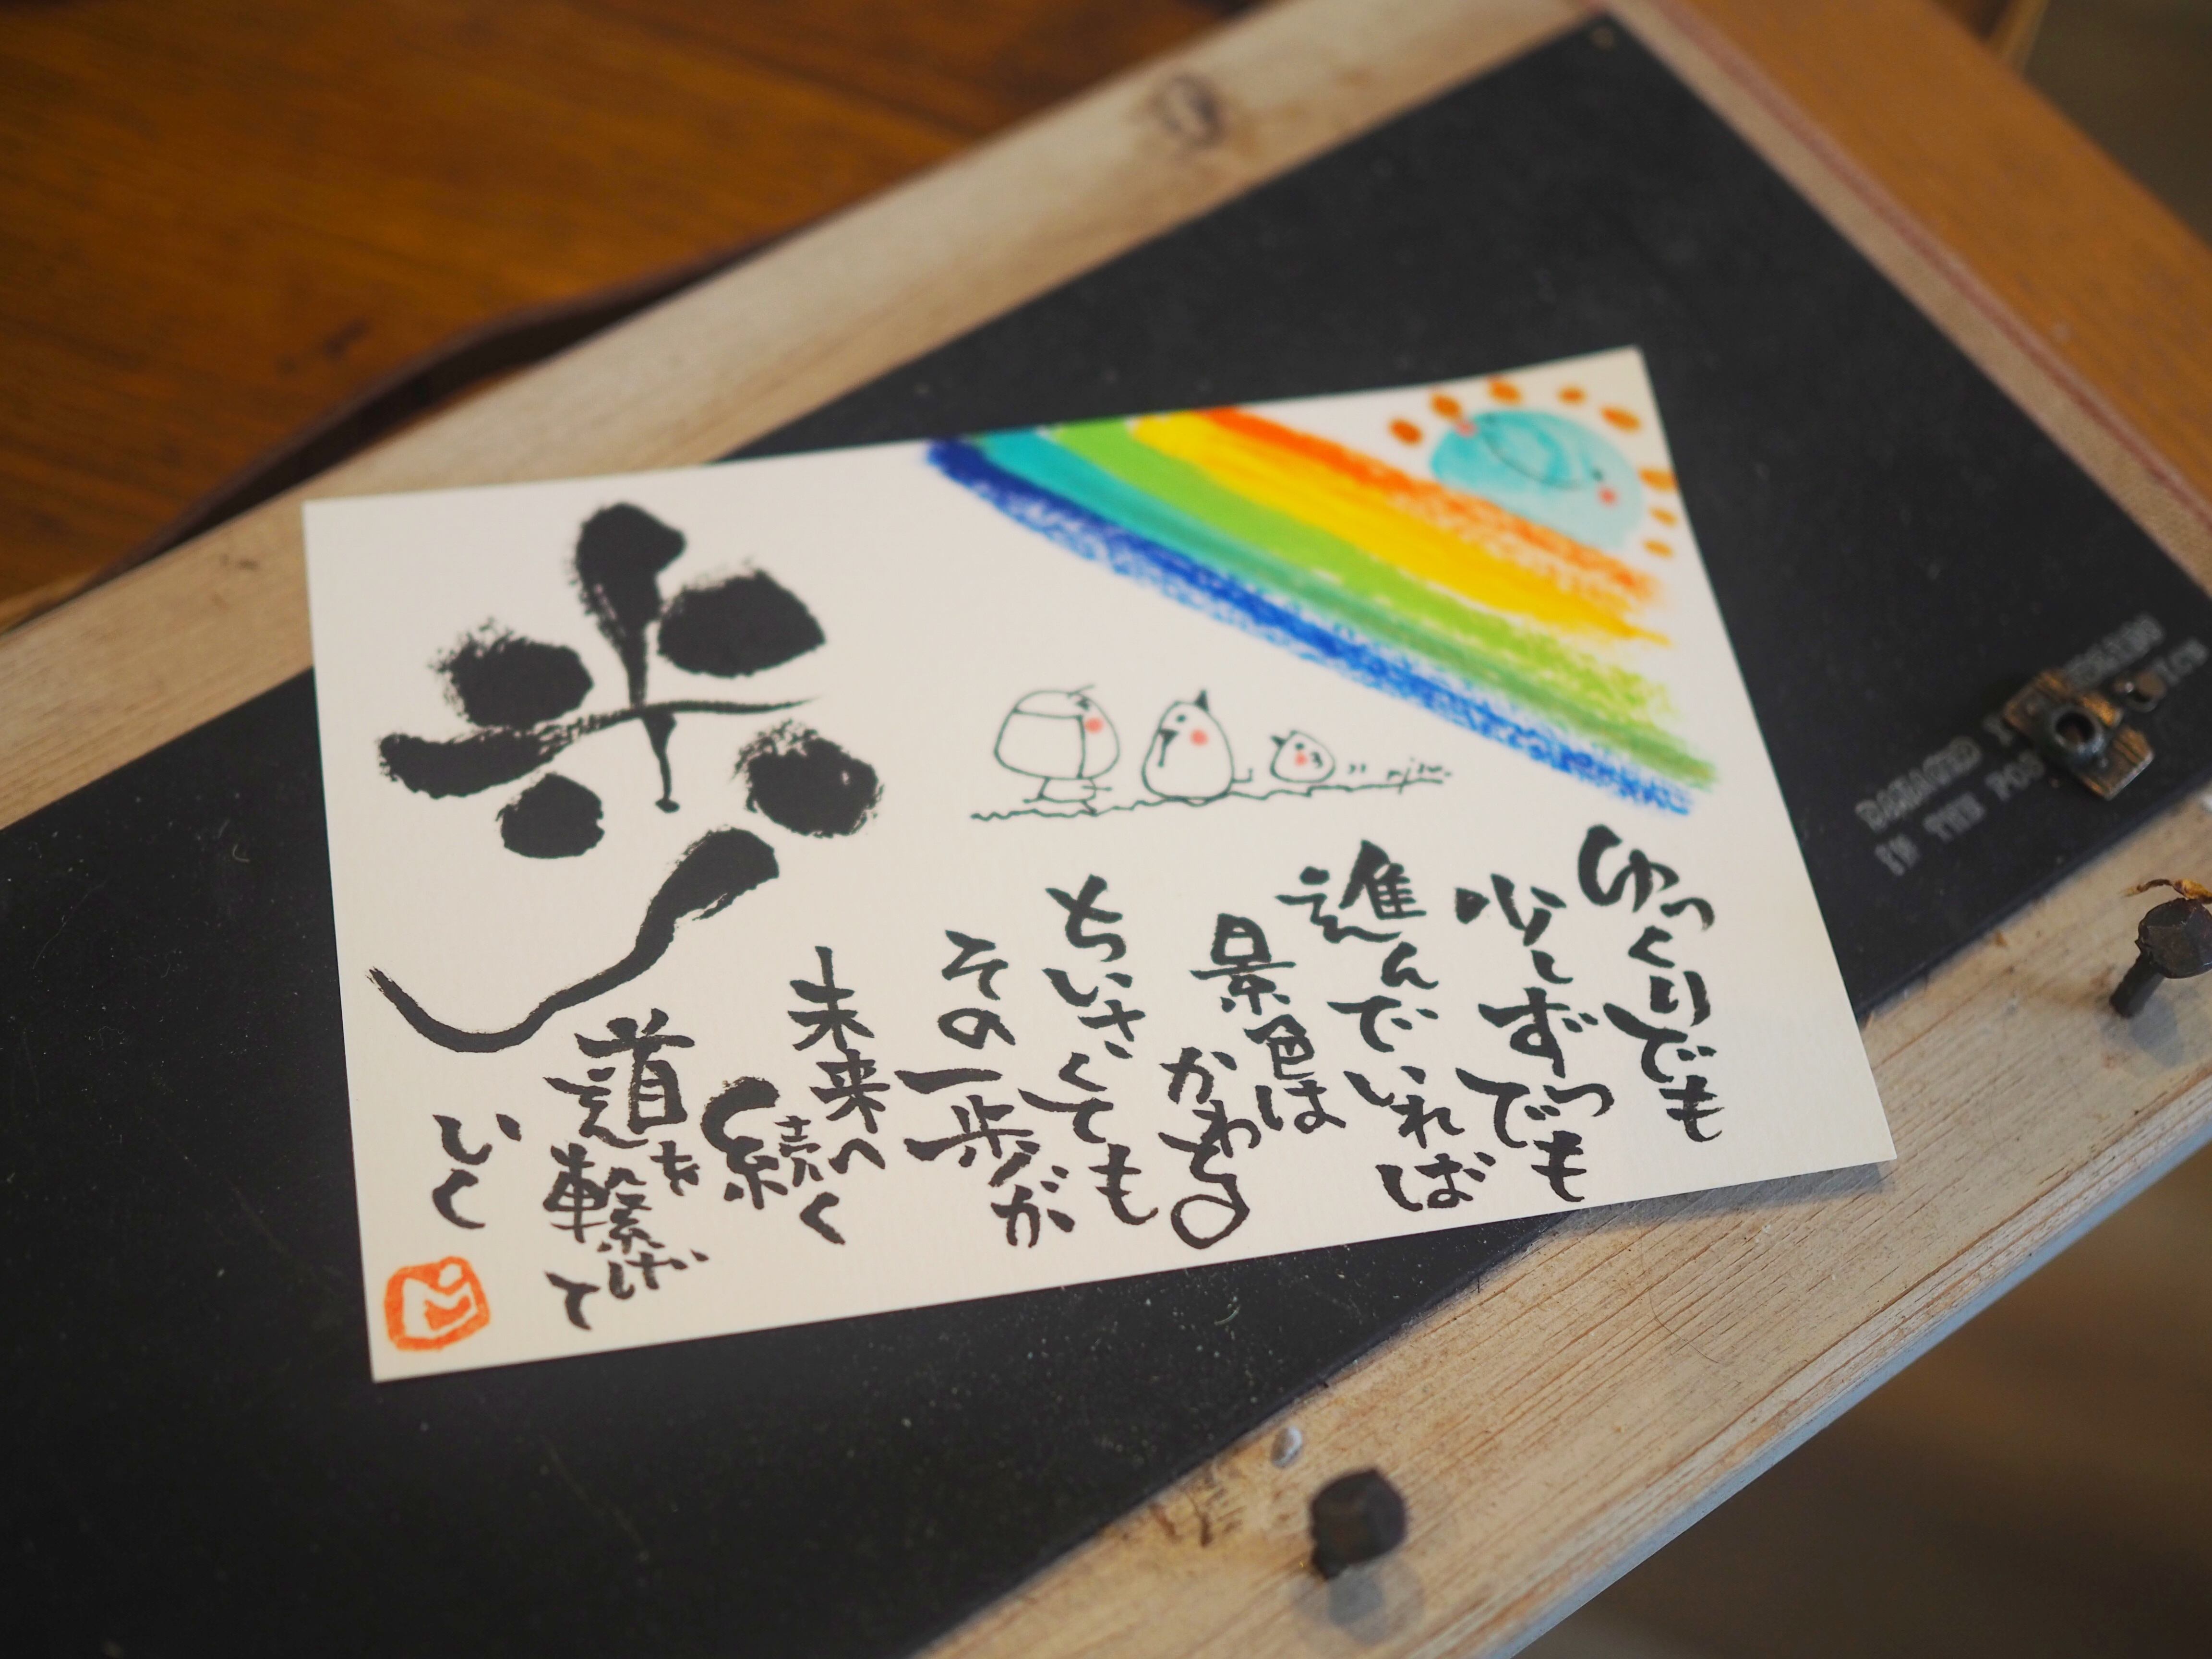 歩
ゆっくりでも
少しずつでも
進んでいれば
景色は
かわる
ちいさくても
その一歩が
未来へ
続く
道を
繋げて
いく